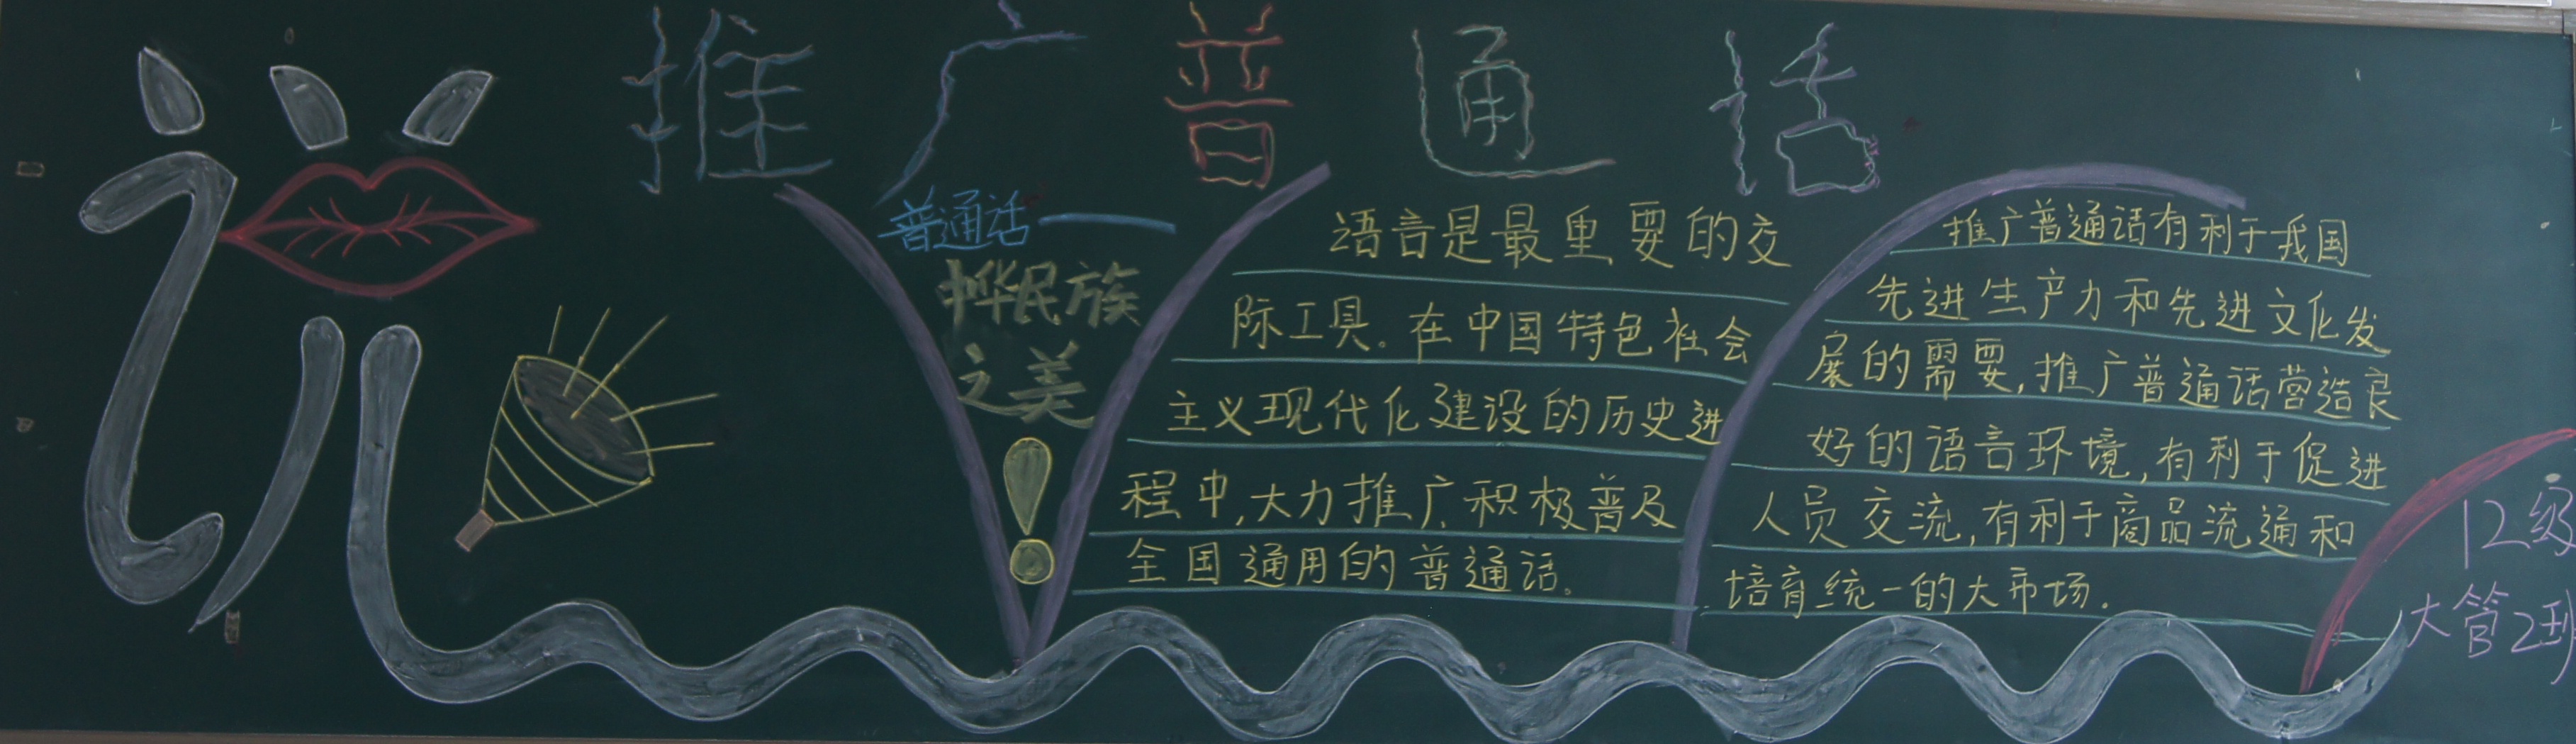 说
推广普通话
普通话——
中华民族
之美
!
语言是最重要的交
际工具。在中国特色社会
主义现代化建设的历史进
程中,大力推广、积极普及
全国通用的普通话。
推广普通话有利于我国
先进生产力和先进文化发
展的需要,推广普通话营造良
好的语言环境,有利于促进
人员交流,有利于商品流通和
培育统一的大市场.
12级
大管2班